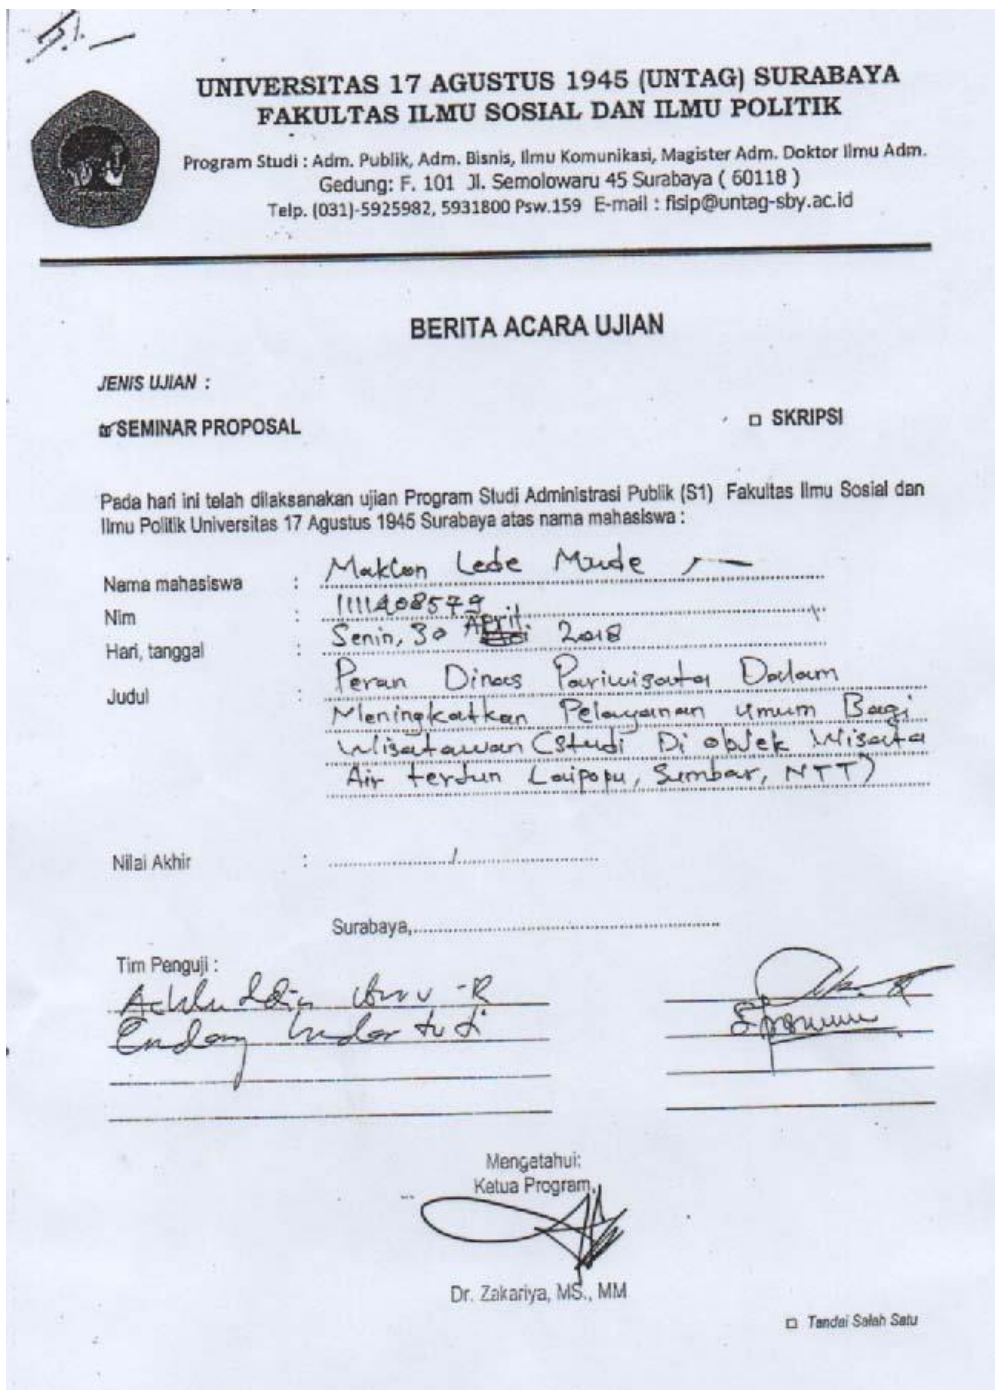 UNIVERSITAS 17 AGUSTUS 1945 (UNTAG) SURABAYA
FAKULTAS ILMU SOSIAL DAN ILMU POLITIK
Program Studi : Adm. Publik, Adm. Bisnis, Ilmu Komunikasi, Magister Adm. Doktor Ilmu Adm.
Gedung: F. 101 Jl. Semolowaru 45 Surabaya ( 60118 )
Telp. (031)-5925982, 5931800 Psw.159 E-mail : fisip@untag-sby.ac.id
BERITA ACARA UJIAN
JENIS UJIAN :
SEMINAR PROPOSAL
□ SKRIPSI
Pada hari ini telah dilaksanakan ujian Program Studi Administrasi Publik (S1) Fakultas Ilmu Sosial dan
Ilmu Politik Universitas 17 Agustus 1945 Surabaya atas nama mahasiswa :
Nama mahasiswa : Maklon Lede Mude
Nim : 1111408579
Hari, tanggal : Senin, 30 April 2018
Judul : Peran Dinas Pariwisata Dalam
Meningkatkan Pelayanan Umum Bagi
Wisatawan (Studi Di objek Wisata
Air terjun Laipopu, Sumbar, NTT)
Nilai Akhir :
Surabaya,
Tim Penguji :
Endang Indartuti
Mengetahui:
Ketua Program,
Dr. Zakariya, MS., MM
□ Tandai Salah Satu